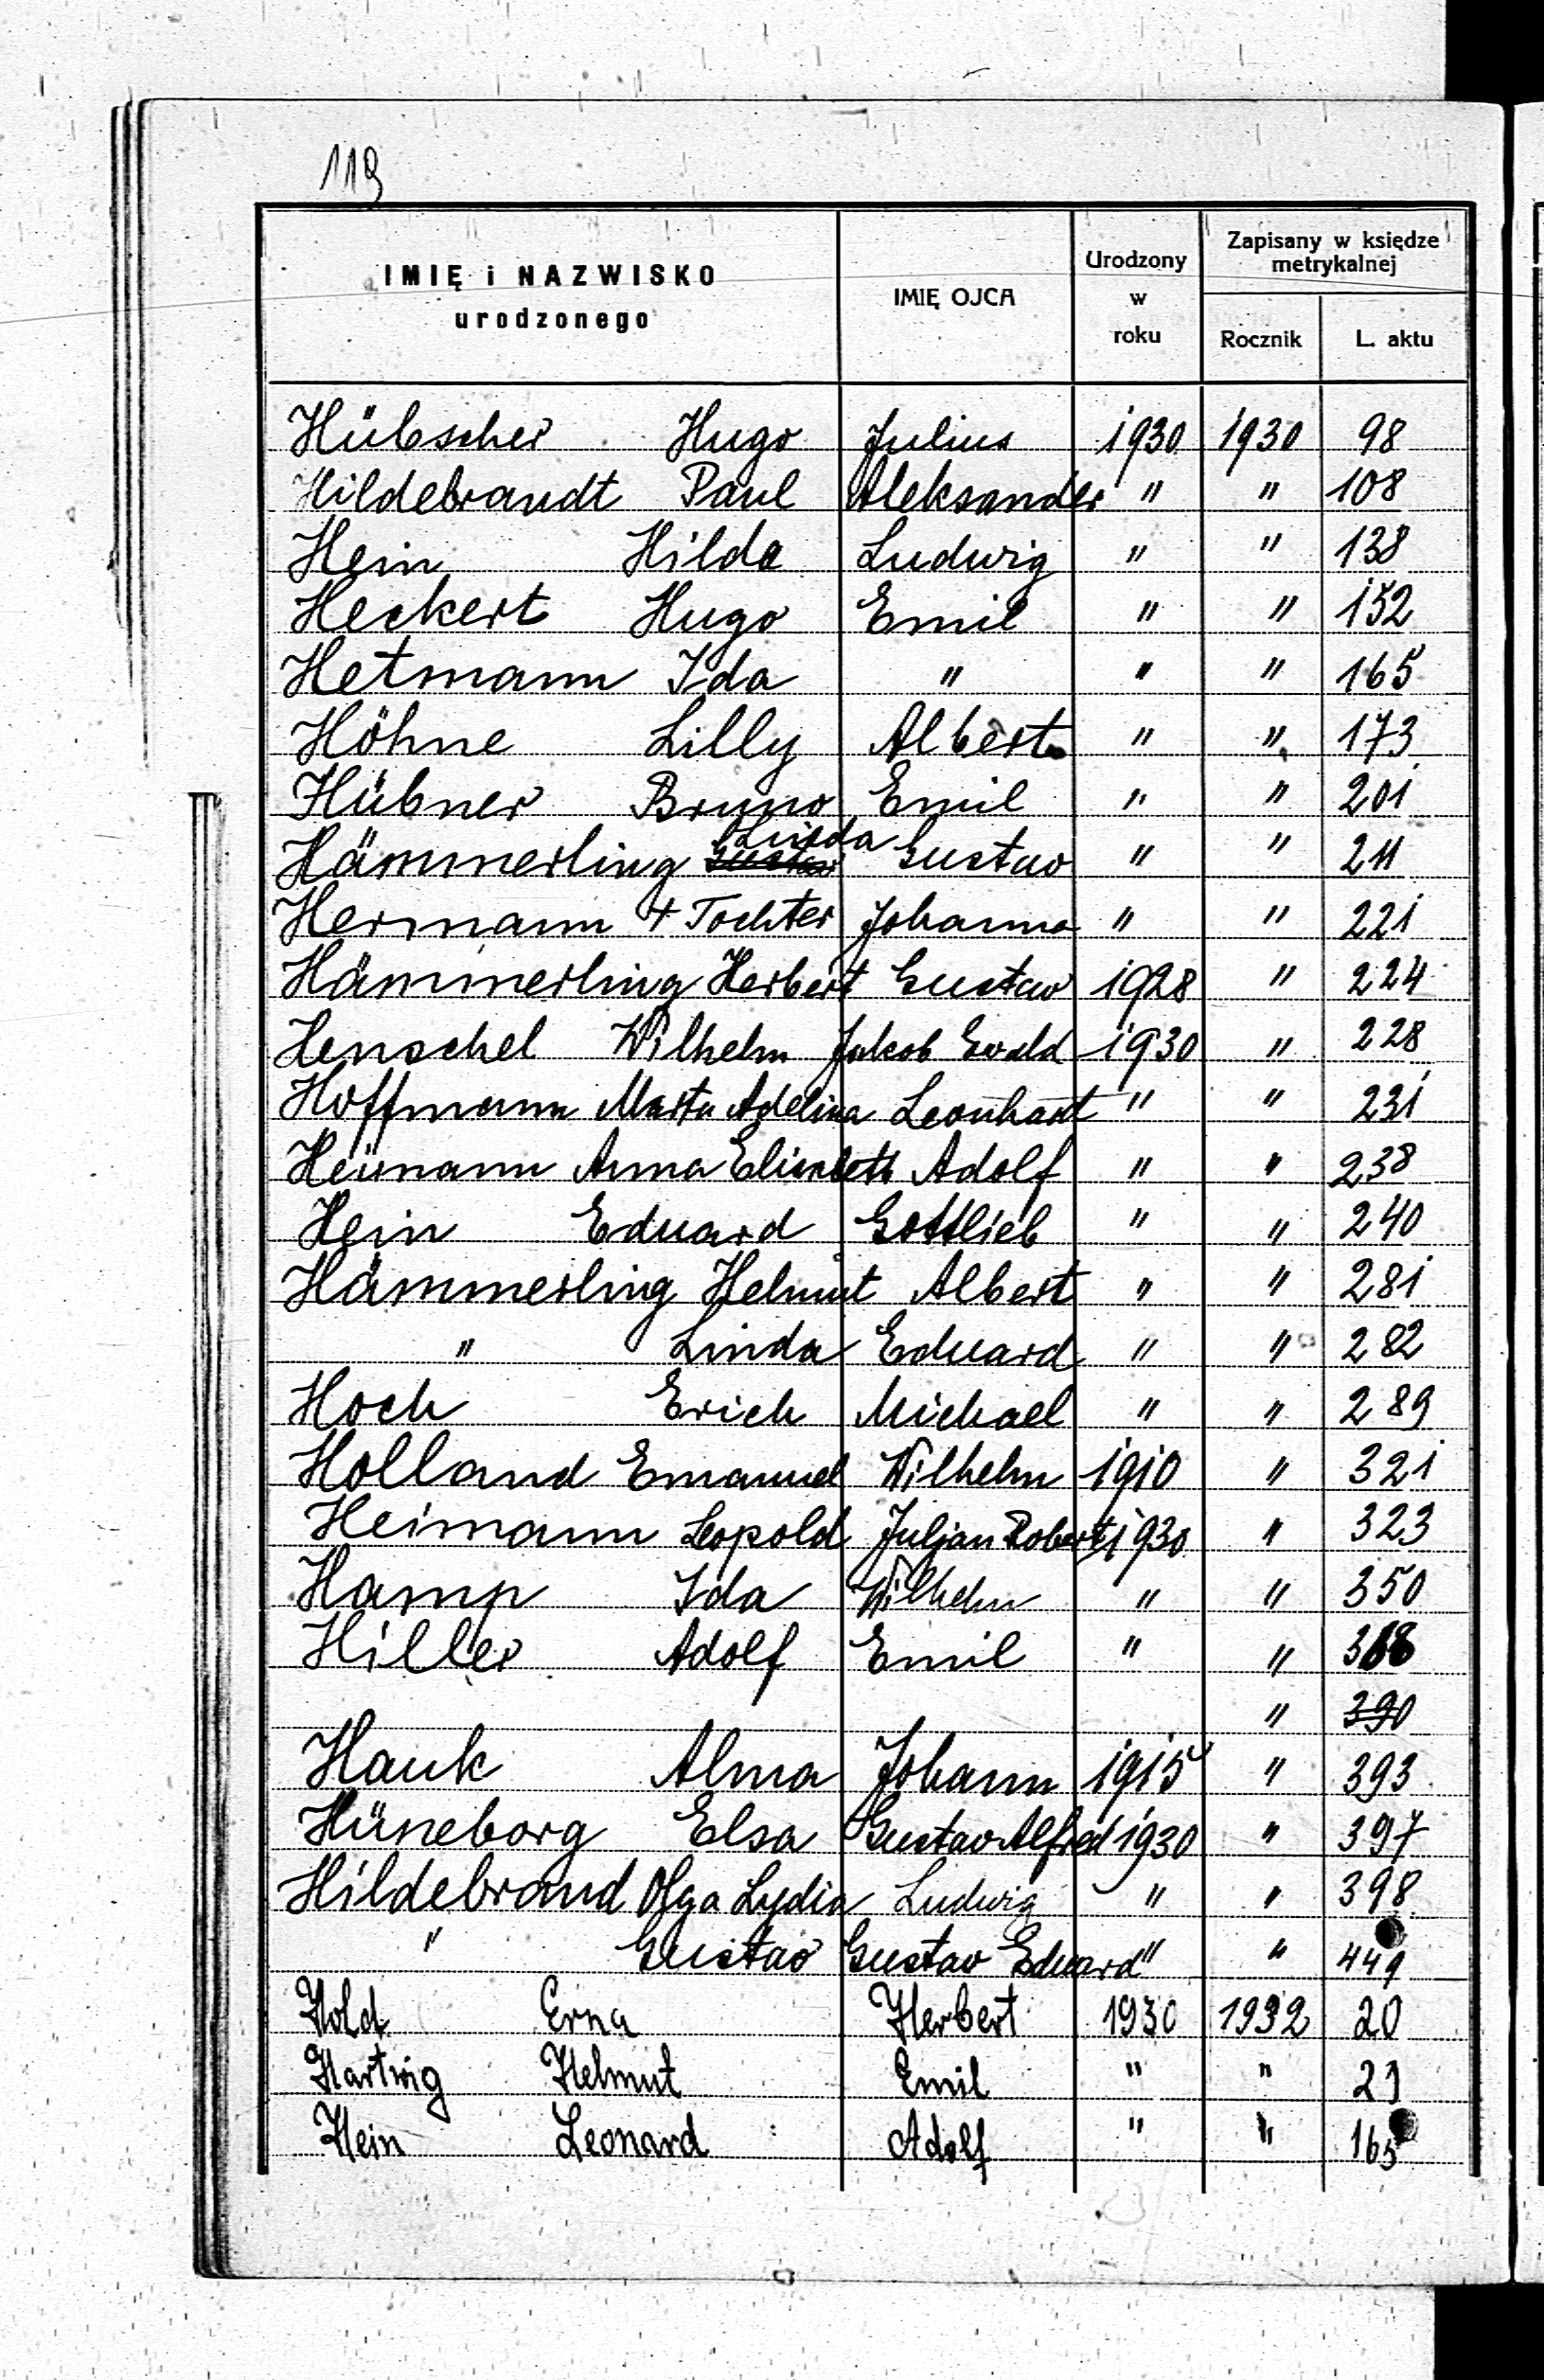 119
IMIĘ i NAZWISKO urodzonego IMIĘ OJCA Urodzony w roku Zapisany w księdze metrykalnej Rocznik L. aktu
Hübscher Hugo Julius 1930 1930 98
Hildebrandt Paul Aleksander " " 108
Hein Hilda Ludwig " " 138
Heckert Hugo Emil " " 152
Hetmann Ida " " " 165
Höhne Lilly Albert " " 173
Hübner Bruno Emil " " 201
Linda
Hämmerling Gustav Gustav " " 211
Hermann + Tochter Johanna " " 221
Hämmerling Herbert Gustav 1928 " 224
Henschel Wilhelm Jakob Ewald 1930 " 228
Hoffmann Marta Adelina Leonhard " " 231
Heimann Anna Elisabeth Adolf " " 238
Hein Eduard Gottlieb " " 240
Hämmerling Helmut Albert " " 281
" Linda Eduard " " 282
Hoch Erich Michael " " 289
Holland Emanuel Wilhelm 1910 " 321
Heimann Leopold Juljan Robert 1930 " 323
Hamp Ida Wilhelm " " 350
Hiller Adolf Emil " "
" 390
Hauk Alma Johann 1915 " 393
Hüneborg Elsa Gustav Alfred 1930 " 397
Hildebrand Olga Lydia Ludwig " " 398
" Gustav Gustav Eduard " " 449
Hold Erna Herbert 1930 1932 20
Hartwig Helmut Emil " " 23
Hein Leonard Adolf " " 165